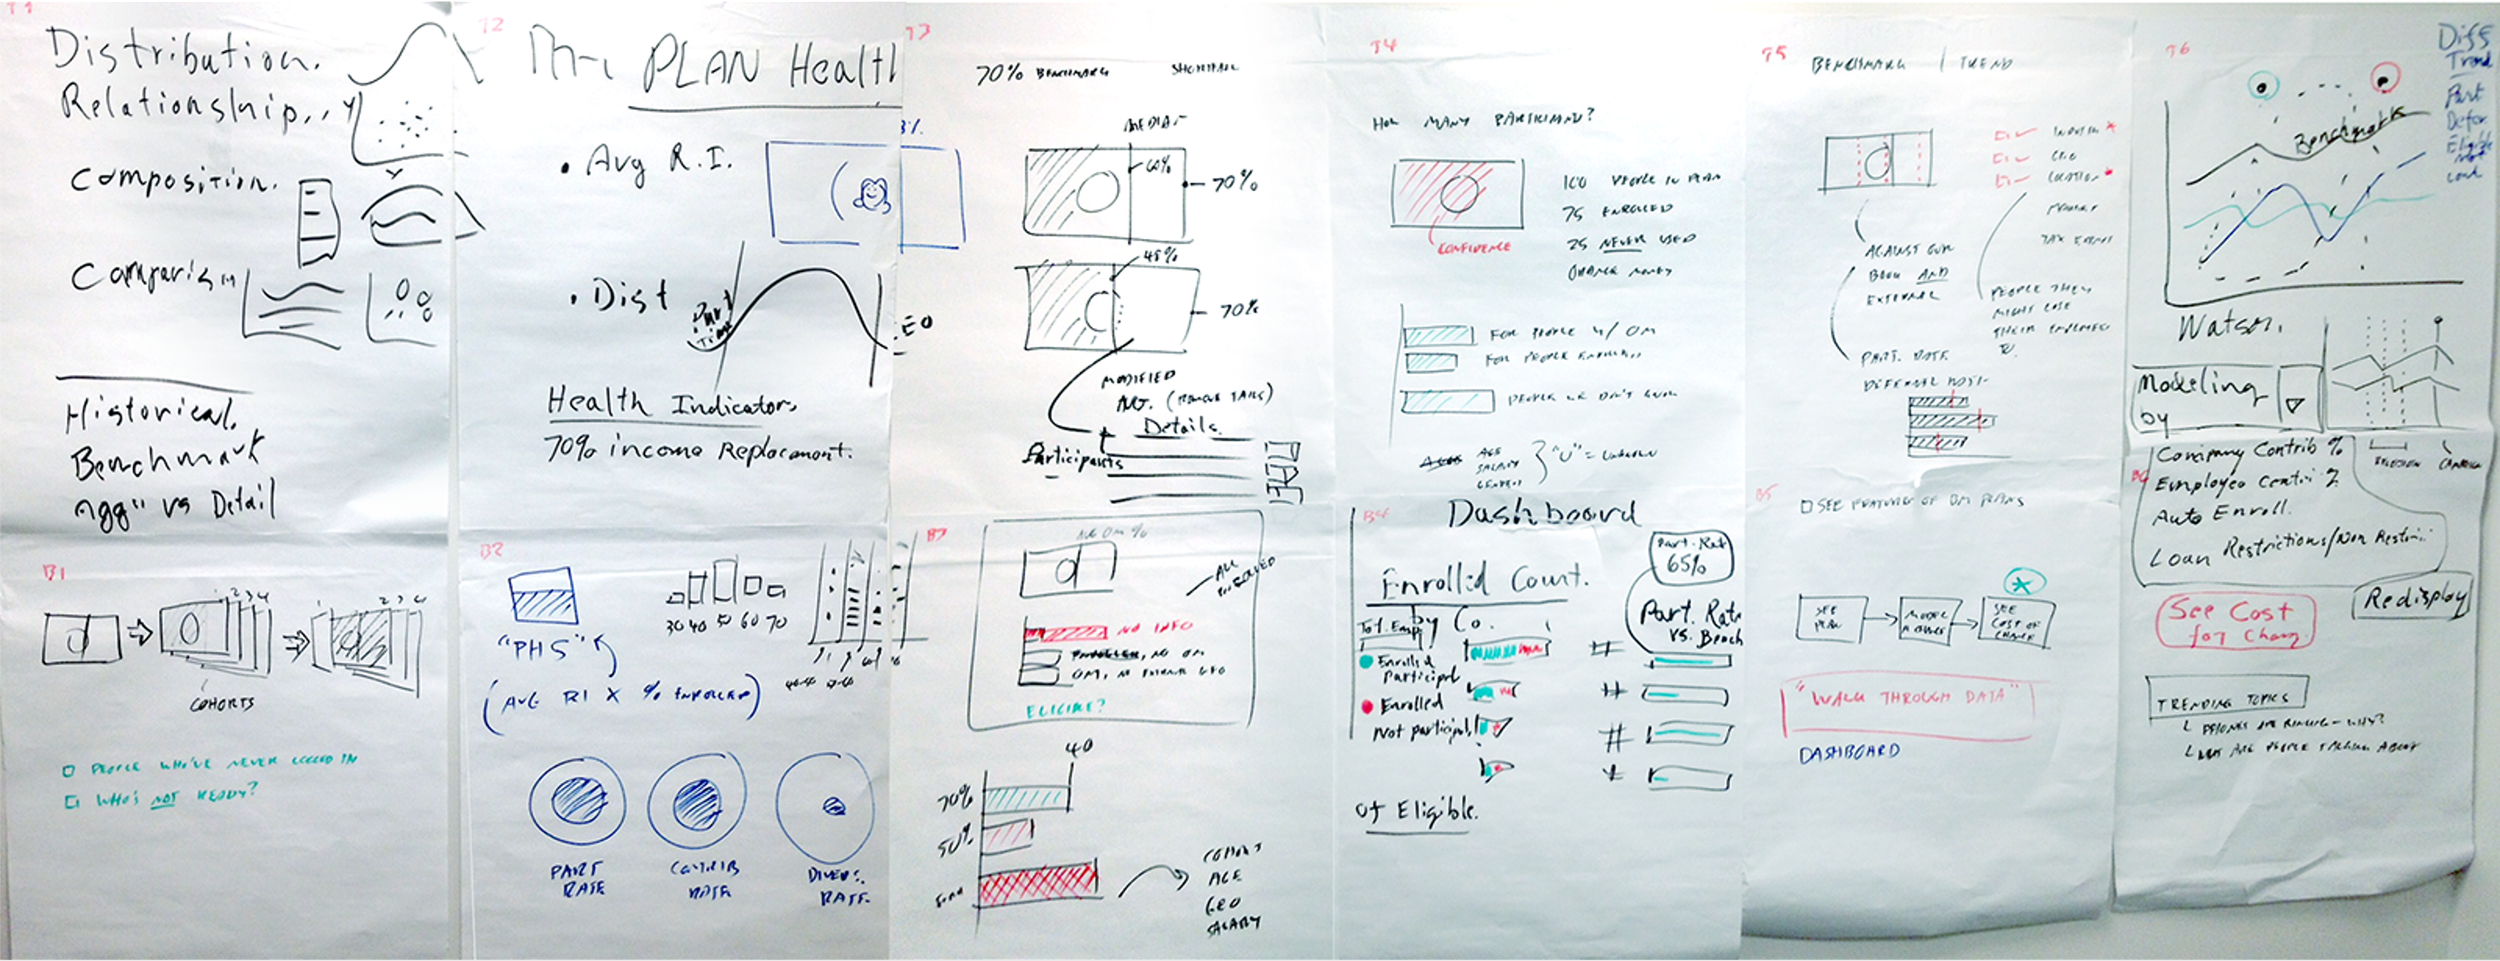 T1
Distribution.
Relationship..
Y
Composition.
Y
Comparism
Historical.
Benchmark
agg" vs Detail
B1
1 2 3 4
1 2 3 4
COHORTS
PEOPLE WHO'VE NEVER LOGGED IN
WHO'S NOT READY?
T2
PLAN Health
• Avg R.I.
• Dist
Part
time
CEO
Health Indicators
70% income Replacement.
B2
30 40 50 60 70
"PHS"
(AVG RI X % ENROLLED)
PART
RATE
CONTRIB
RATE
DIVERS.
RATE
T3
70% BENCHMARK SHORTFALL
MEDIAN
60%
70%
45%
70%
MODIFIED
AVG. (REMOVE TAILS)
Details
Participants
B3
AVG OM %
ALL
ENROLLED
NO INFO
NO OM
OM, NO
ELIGIBLE?
40
70%
50%
COHORT
AGE
GEO
SALARY
T4
HOW MANY PARTICIPANTS?
CONFIDENCE
100 PEOPLE IN PLAN
75 ENROLLED
25 NEVER USED
ORANGE MONEY
FOR PEOPLE W/ OM
FOR PEOPLE ENROLLED
PEOPLE WE DON'T KNOW
AGE
SALARY
GENDER
"U" = UNKNOWN
B4
Dashboard
Part. Rate
65%
Enrolled Count.
by Co.
Tot. Emp
Part. Rate
vs. Bench
Enrolled
Participat
Enrolled
Not participat
#
#
#
#
of Eligible.
T5
BENCHMARK | TREND
INDUSTRY
GEO
LOCATION
TAX EXEMPT
AGAINST OUR
BOOK AND
EXTERNAL
PEOPLE THEY
MIGHT LOSE
THEIR EMPLOYEES
TO.
PART. RATE
DEFERRAL RATE
B5
SEE FEATURES OF OM PLANS
SEE
PLAN
MODEL
A CHANGE
SEE
COST OF
CHANGE
"WALK THROUGH DATA"
DASHBOARD
T6
Diff
Trend
Part
Defer
Eligible
not
Benchmark
Watson.
Modeling
by
B6
Company Contrib %
Employee Contri %
Auto Enroll.
Loan Restrictions/Non Restri
Redisplay
See Cost
for Chang
TRENDING TOPICS
WHAT ARE PEOPLE TALKING ABOUT